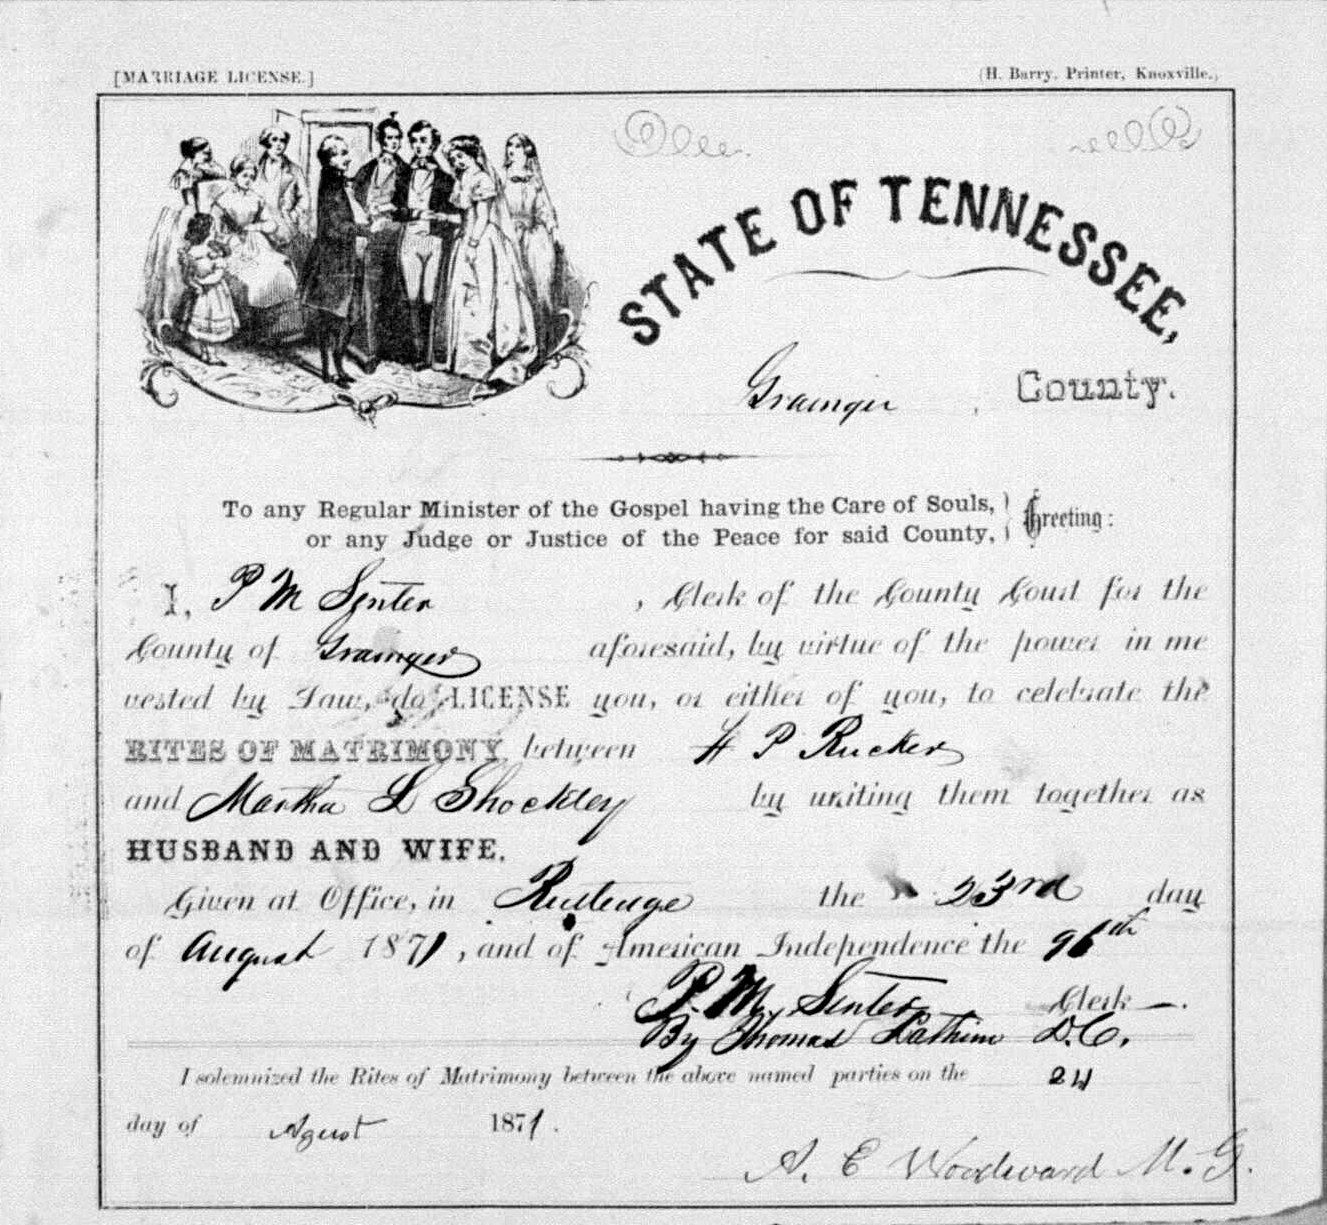 [MARRIAGE LICENSE.]
(H. Barry, Printer, Knoxville.)
STATE OF TENNESSEE,
Grainger County.
To any Regular Minister of the Gospel having the Care of Souls,
or any Judge or Justice of the Peace for said County,
Greeting:
I, P M Senter , Clerk of the County Court for the
County of Grainger aforesaid, by virtue of the power in me
vested by Law, do LICENSE you, or either of you, to celebrate the
RITES OF MATRIMONY between H P Rucker
and Martha L Shockley by uniting them together as
HUSBAND AND WIFE.
Given at Office, in Rutledge the 23rd day
of August 1871, and of American Independence the 96th
P. M. Senter Clerk
By Thomas Lathim D.C.
I solemnized the Rites of Matrimony between the above named parties on the 24
day of Agust 1871.
A. E Woodward M.G.